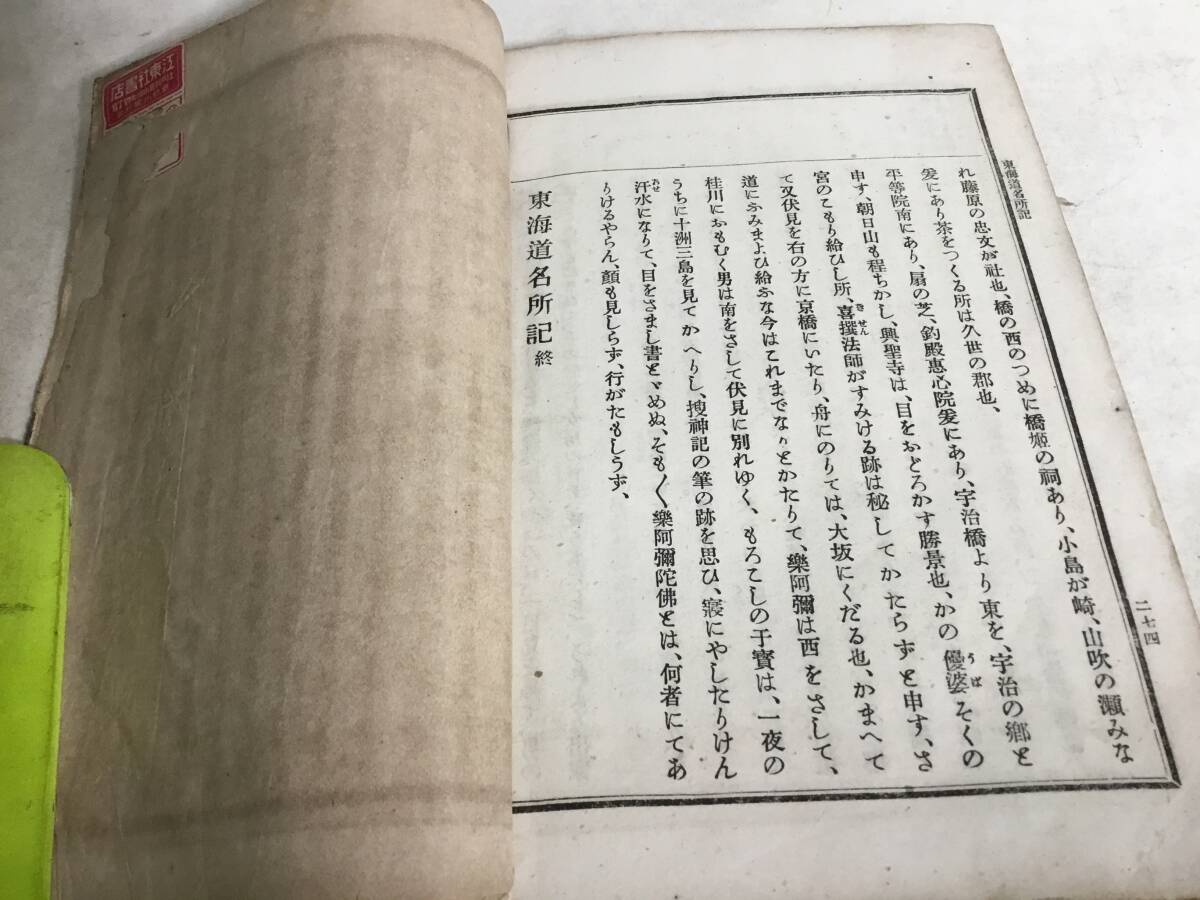 東海道名所記
二七四
れ藤原の忠文が社也、橋の西のつめに橋姫の祠あり、小島が崎、山吹の瀬みな
爰にあり茶をつくる所は久世の郡也、
平等院南にあり、扇の芝、釣殿惠心院爰にあり、宇治橋より東を、宇治の鄕と
申す、朝日山も程ちかし、興聖寺は、目をおどろかす勝景也、かの優婆そくの
宮のこもり給ひし所、喜撰法師がすみける跡は秘してかたらずと申す、さ
て又伏見を右の方に京橋にいたり、舟にのりては、大坂にくだる也、かまへて
道にふみまよひ給ふな今はこれまでなりとかたりて、樂阿彌は西をさして、
桂川におもむく男は南をさして伏見に別れゆく、もろこしの于寳は、一夜の
うちに十洲三島を見てかへりし、捜神記の筆の跡を思ひ、寢にやしたりけん
汗水になりて、目をさまし書とゞめぬ、そも〳〵樂阿彌陀佛とは、何者にてあ
りけるやらん、顔も見しらず、行がたもしらず、
東海道名所記 終
江東社書店